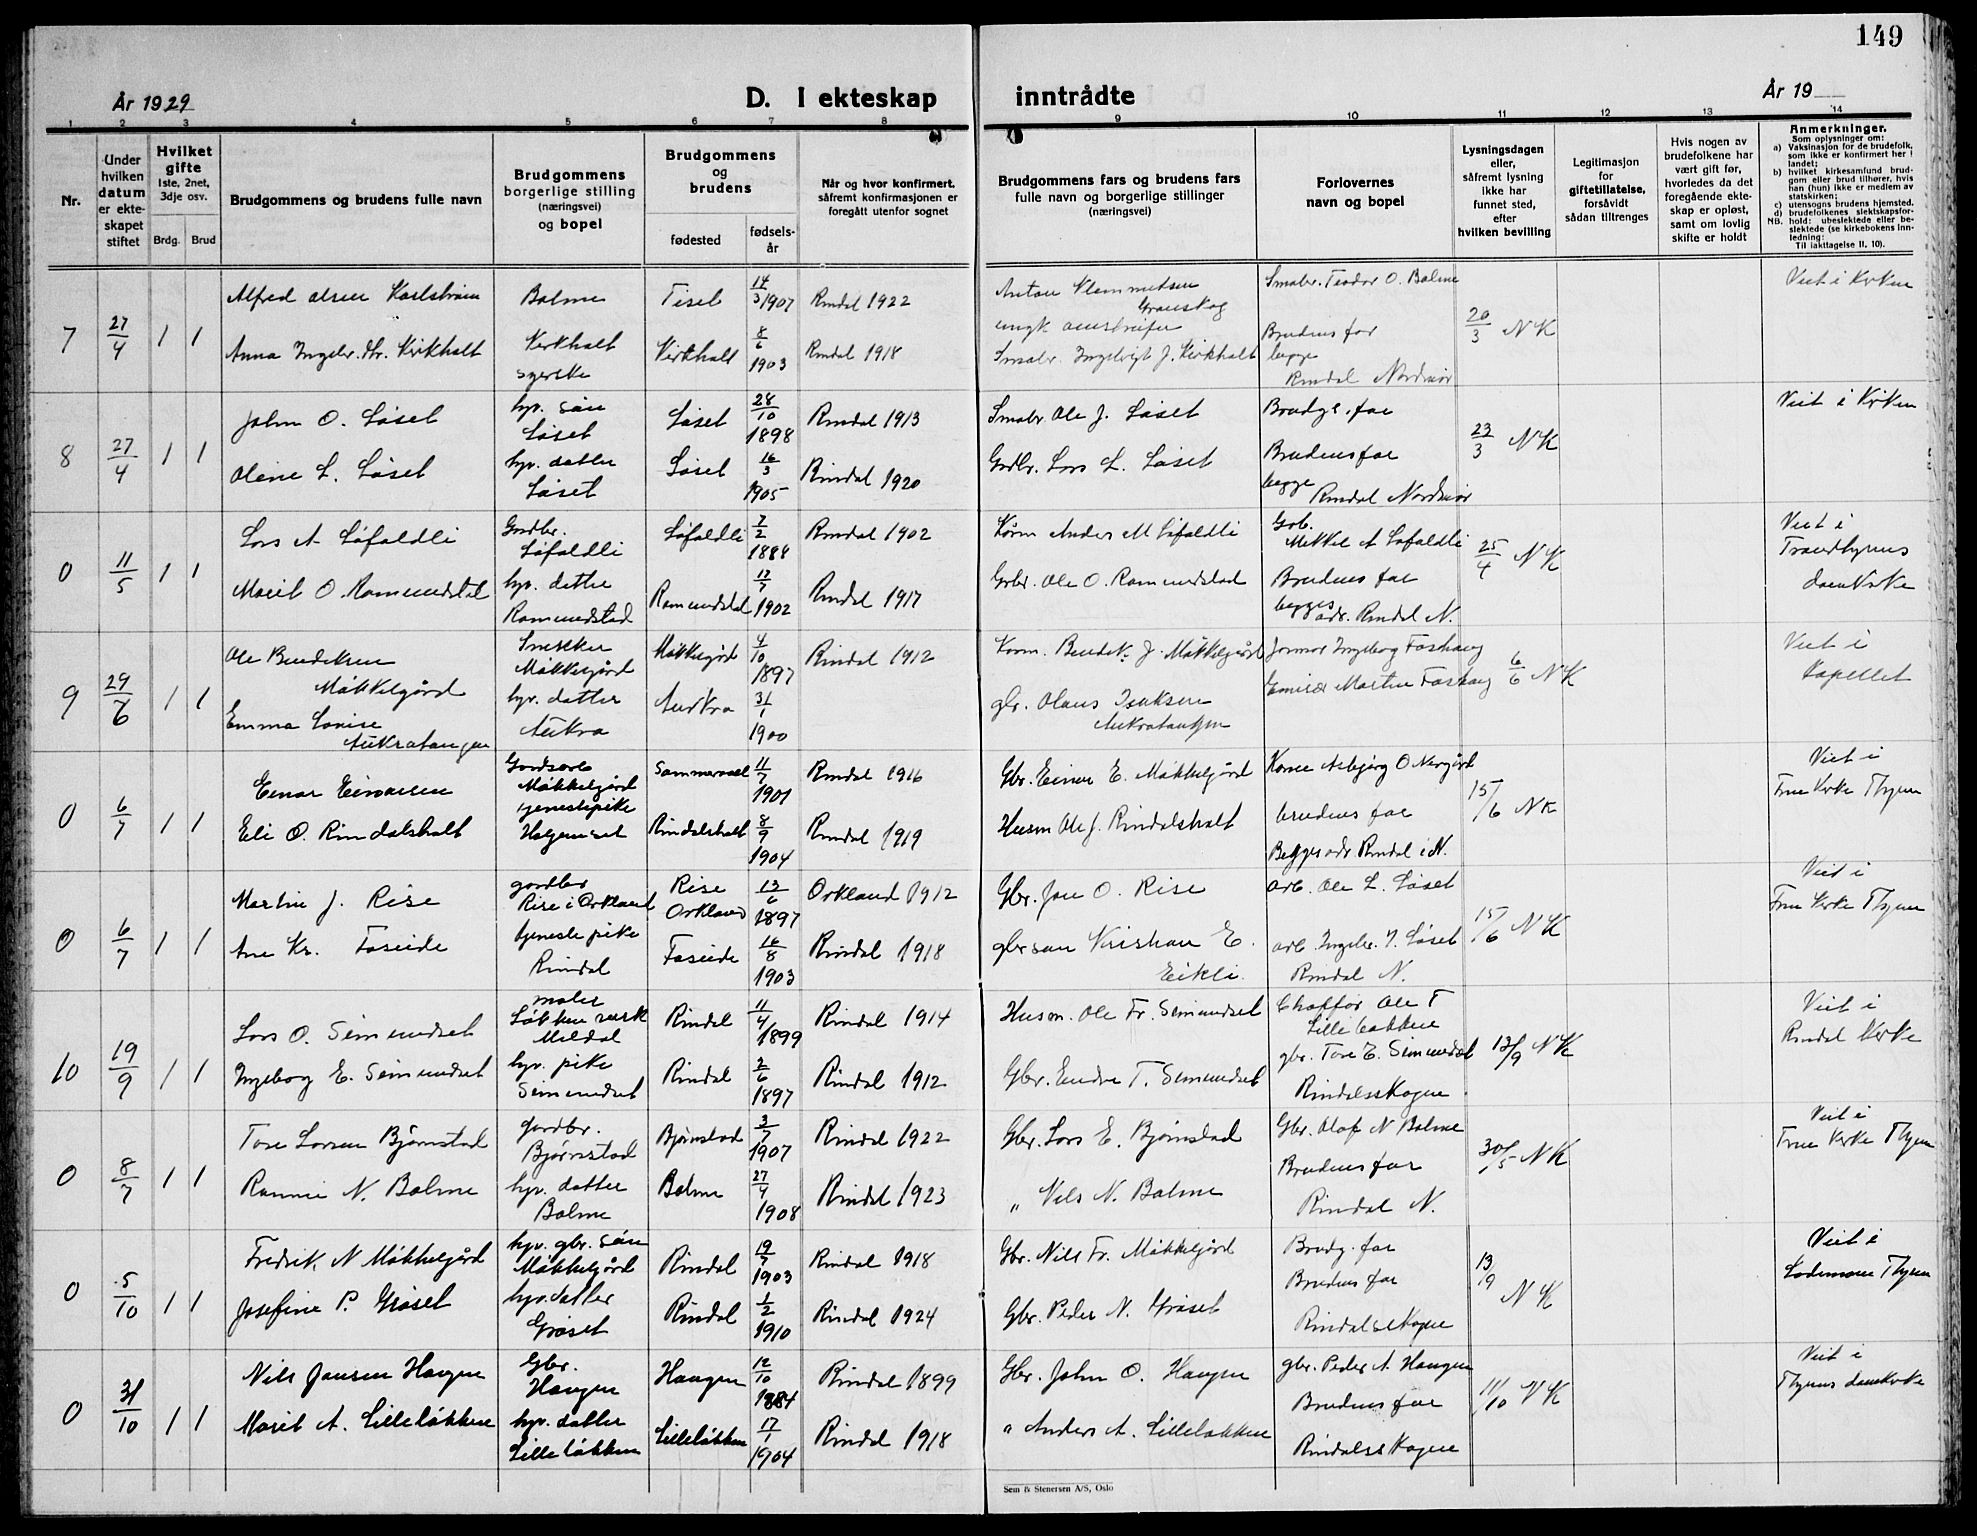 149
År 1929
D. I ekteskap
inntrådte
År 19
1 2 3 4 5 6 7 8 9 10 11 12 13 14
Nr.
Under hvilken datum er ekteskapet stiftet
Hvilket gifte
1ste, 2net, 3dje osv.
Brdg. Brud
Brudgommens og brudens fulle navn
Brudgommens borgerlige stilling (næringsvei) og bopel
Brudgommens og brudens
fødested
fødselsår
Når og hvor konfirmert, såfremt konfirmasjonen er foregått utenfor sognet
Brudgommens fars og brudens fars fulle navn og borgerlige stillinger (næringsvei)
Forlovernes navn og bopel
Lysningsdagen eller, såfremt lysning ikke har funnet sted, efter hvilken bevilling
Legitimasjon for giftetillatelse, forsåvidt sådan tiltrenges
Hvis nogen av brudefolkene har vært gift før, hvorledes da det foregående ekteskap er opløst, samt om lovlig skifte er holdt
Anmerkninger.
Som oplysninger om:
a) Vaksinasjon for de brudefolk, som ikke er konfirmert her i landet;
b) hvilket kirkesamfund brudgom eller brud tilhører, hvis han (hun) ikke er medlem av statskirken;
c) utensogns brudens hjemsted.
d) brudefolkenes slektskapsforhold: ubeslektede eller beslektede (se kirkebokens Innledning:
NB. Til iakttagelse II, 10).
7 27/4 1 1
Alfred Olsen Karlstrøm Bolme Tiset 14/3 1907 Rindal 1922
Anna Ingebr. dtr. Kirkholt Kirkholt syerske Kirkholt 8/6 1903 Rindal 1918
Anton Klemmetsen Granskog
Smabr. Ingebrigt J. Kirkholt
Smabr. Teodor O. Bolme
Brudens far
begge
Rindal Nordmør
20/3 N K
Viet i Kirken
8 27/4 1 1
John O. Løset hjv. søn Løset Løset 28/10 1898 Rindal 1913
Oline L. Løset hjv. datter Løset Løset 16/3 1905 Rindal 1920
Smabr. Ole J. Løset
Grdbr. Lars L. Løset
Brudgs. far
Brudens far
begge Rindal Nordmør
23/3 N K
Viet i Kirken
0 11/5 1 1
Lars A Løfaldli Grdbr. Løfaldli Løfaldli 7/2 1884 Rindal 1902
Marit O. Romundstad hjv. datter Romundstad Romundstad 17/7 1902 Rindal 1917
Kårm Anders M Løfaldli
Grbr. Ole O. Romundstad
Grb. Mikkel A Løfaldli
Brudens far
begges adr. Rindal N.
25/4 N K
Viet i Trondhjems domkirke
9 29/6 1 1
Ole Bendiksen Møkkelgård Snekker Møkkelgård Møkkelgård 4/10 1897 Rindal 1912
Emma Lovise Aukratangen hjv. datter Aukra Aukra 31/1 1900
Kårm. Bendik J. Møkkelgård
gbr. Olaus Isaksen Aukratangen
Jormor Ingeborg Foshaug
Emisær Martin Foshaug
6/6 N K
Viet i Kapellet
0 6/7 1 1
Einar Einarsen Gårdsarb Møkkelgård Sommervoll 11/7 1901 Rindal 1916
Eli O. Rindalsholt tjenestepike Helgemset Rindalsholt 8/9 1904 Rindal 1919
Gbr. Einar E. Møkkelgård
Husm Ole J. Rindalsholt
Asbjørg O Nergård
brudens far
Begges adr. Rindal i N.
15/6 N K
Viet i Frue Kirke Thjem
0 6/7 1 1
Martin J. Rise gardbr Rise i Orkland Rise Orkland 12/6 1897 Orkland 1912
Ane Kr. Foseide tjeneste pike Rindal Foseide 16/8 1903 Rindal 1918
Gbr. Jon O. Rise
gbrsøn Kristian E. Eikli.
arb. Ole L. Løset
arb. Ingebr. I. Løset
Rindal N.
15/6 N K
Viet i Frue Kirke Thjem
10 19/9 1 1
Lars O. Simundset maler Løkken verk Meldal Rindal 11/4 1899 Rindal 1914
Ingeborg E. Simundset hjv. pike Simundset Rindal 2/6 1897 Rindal 1912
Husm. Ole Fr. Simundset
Gbr. Endre T. Simundset
Chaffør Ole T Lillebakken
gbr. Tore E. Simundset
Rindalsskogen
12/9 N K
Viet i Rindal Kirke
0 8/7 1 1
Tore Larsen Bjørnstad gardbr. Bjørnstad Bjørnstad 3/7 1907 Rindal 1922
Rannei N. Bolme hjv. datter Bolme Bolme 27/4 1908 Rindal 1923
Gbr. Lars E. Bjørnstad
" Nils N. Bolme
Gbr. Olaf N Bolme
Brudens far
Rindal N.
30/5 N K
Viet i Frue Kirke Thjem
0 5/10 1 1
Fredrik N Møkkelgård hjv. gbr. søn Møkkelgård Rindal 19/7 1903 Rindal 1918
Josefine P. Grøset hjv. datter Grøset Rindal 1/2 1910 Rindal 1924
Gbr. Nils Fr. Møkkelgård
Gbr. Peder N. Grøset
Brudg. far
Brudens far
Rindalsskogen
13/9 N K
Viet i Lademoen Thjem
0 31/10 1 1
Nils Jonsen Haugen Gbr. Haugen Haugen 12/10 1884 Rindal 1899
Marit A. Lilleløkken hjv. datter Lilleløkken Lilleløkken 17/1 1904 Rindal 1918
Gbr. John O. Haugen
" Anders A. Lilleløkken
gbr. Peder A. Haugen
Brudens far
Rindalsskogen
11/10 N K
Viet i Thjems domkirke
Sem & Stenersen A/S, Oslo